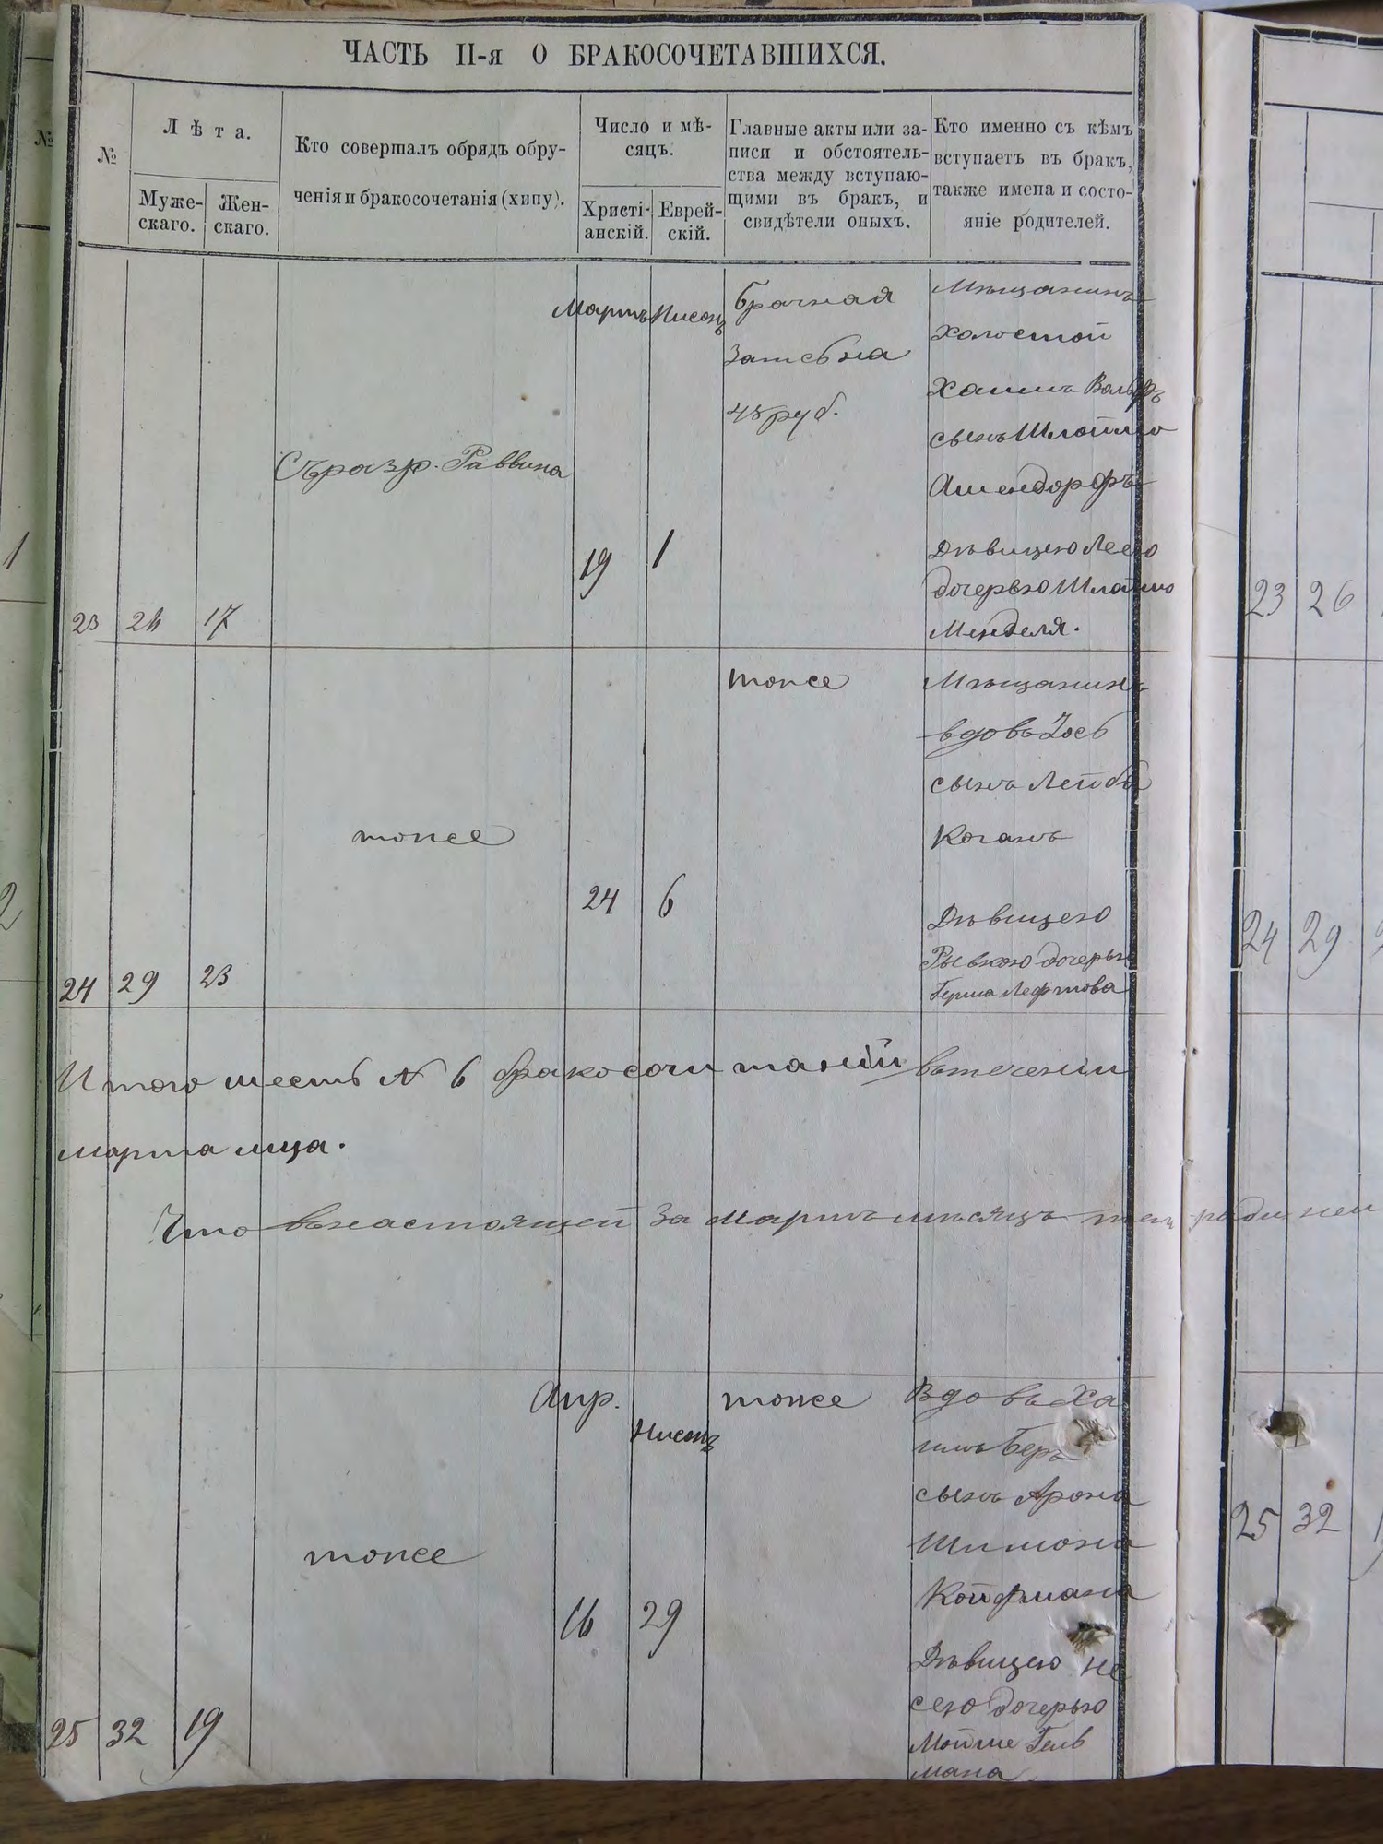 ЧАСТЬ II-я О БРАКОСОЧЕТАВШИХСЯ.
№
Лѣта.
Муже-
скаго.
Жен-
скаго.
Кто совершалъ обрядъ обру-
ченія и бракосочетанія (хипу).
Число и мѣ-
сяцъ.
Христі-
анскій.
Еврей-
скій.
Главные акты или за-
писи и обстоятель-
ства между вступаю-
щими въ бракъ, и
свидѣтели оныхъ.
Кто именно съ кѣмъ
вступаетъ въ бракъ,
также имена и состо-
яніе родителей.
23
26
17
Съ разр. Раввина
Мартъ
19
Нисонъ
1
брачная
запись на
48 руб.
Мѣщанинъ
холостой
Хаимъ Вольфъ
сынъ Шлоймо
Ашендорфъ
Дѣвицею Леею
дочерью Шлаймо
Менделя.
24
29
23
тоже
24
6
тоже
Мѣщанинъ
вдовъ Іось
сынъ Лейба
Коганъ
Дѣвицею
Рывкою дочерью
Герша Лефтова
Итого шесть № 6 бракосочитаній втечении
марта мца.
Что внастоящей за Мартъ мѣсяцъ тетради
25
32
19
тоже
Апр.
16
Нисонъ
29
тоже
Вдовъ Ха
имъ Беръ
сынъ Арона
Шимона
Койфмана
Дѣвицею Не
сею дочерью
Мойше Гель
мана
№
1
2
23 26
24 29
25 32